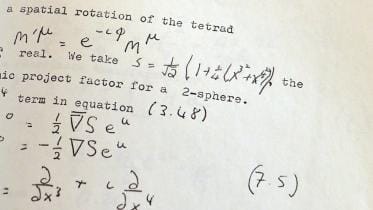 a spatial rotation of the tetrad
m'^μ = e^{-iφ} m^μ
real. We take S = 1/√2 (1+¼(x³²+x⁴²)), the
ic project factor for a 2-sphere.
4 term in equation (3.48)
o = ½ ∇̅S e^u
o = -½ ∇S e^u
= ∂/∂x³ + i ∂/∂x⁴ (7.5)